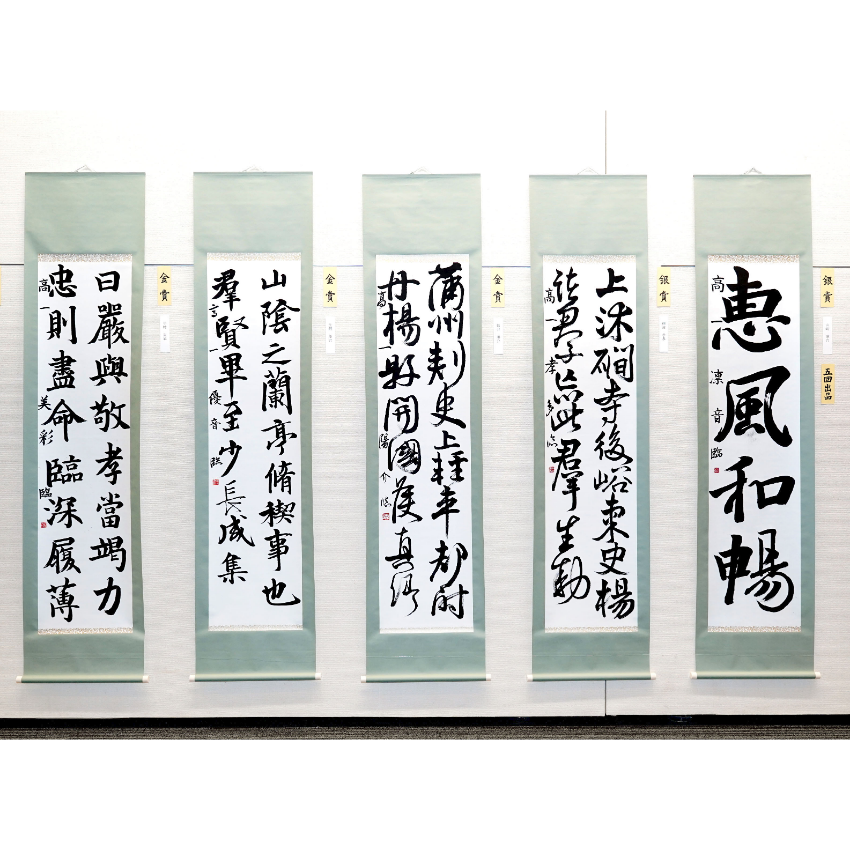 銀賞
五回出品
惠風和暢
高一 凛音 臨
銀賞
上沐磵寺後峪東史楊
君子
高一 孝 臨
金賞
蒲州刺史上輕車都尉
丹楊縣開國侯真卿
高一 陽介 臨
金賞
山陰之蘭亭脩禊事也
羣賢畢至少長咸集
高一 優音 臨
金賞
曰嚴與敬孝當竭力
忠則盡命臨深履薄
高一 美彩 臨